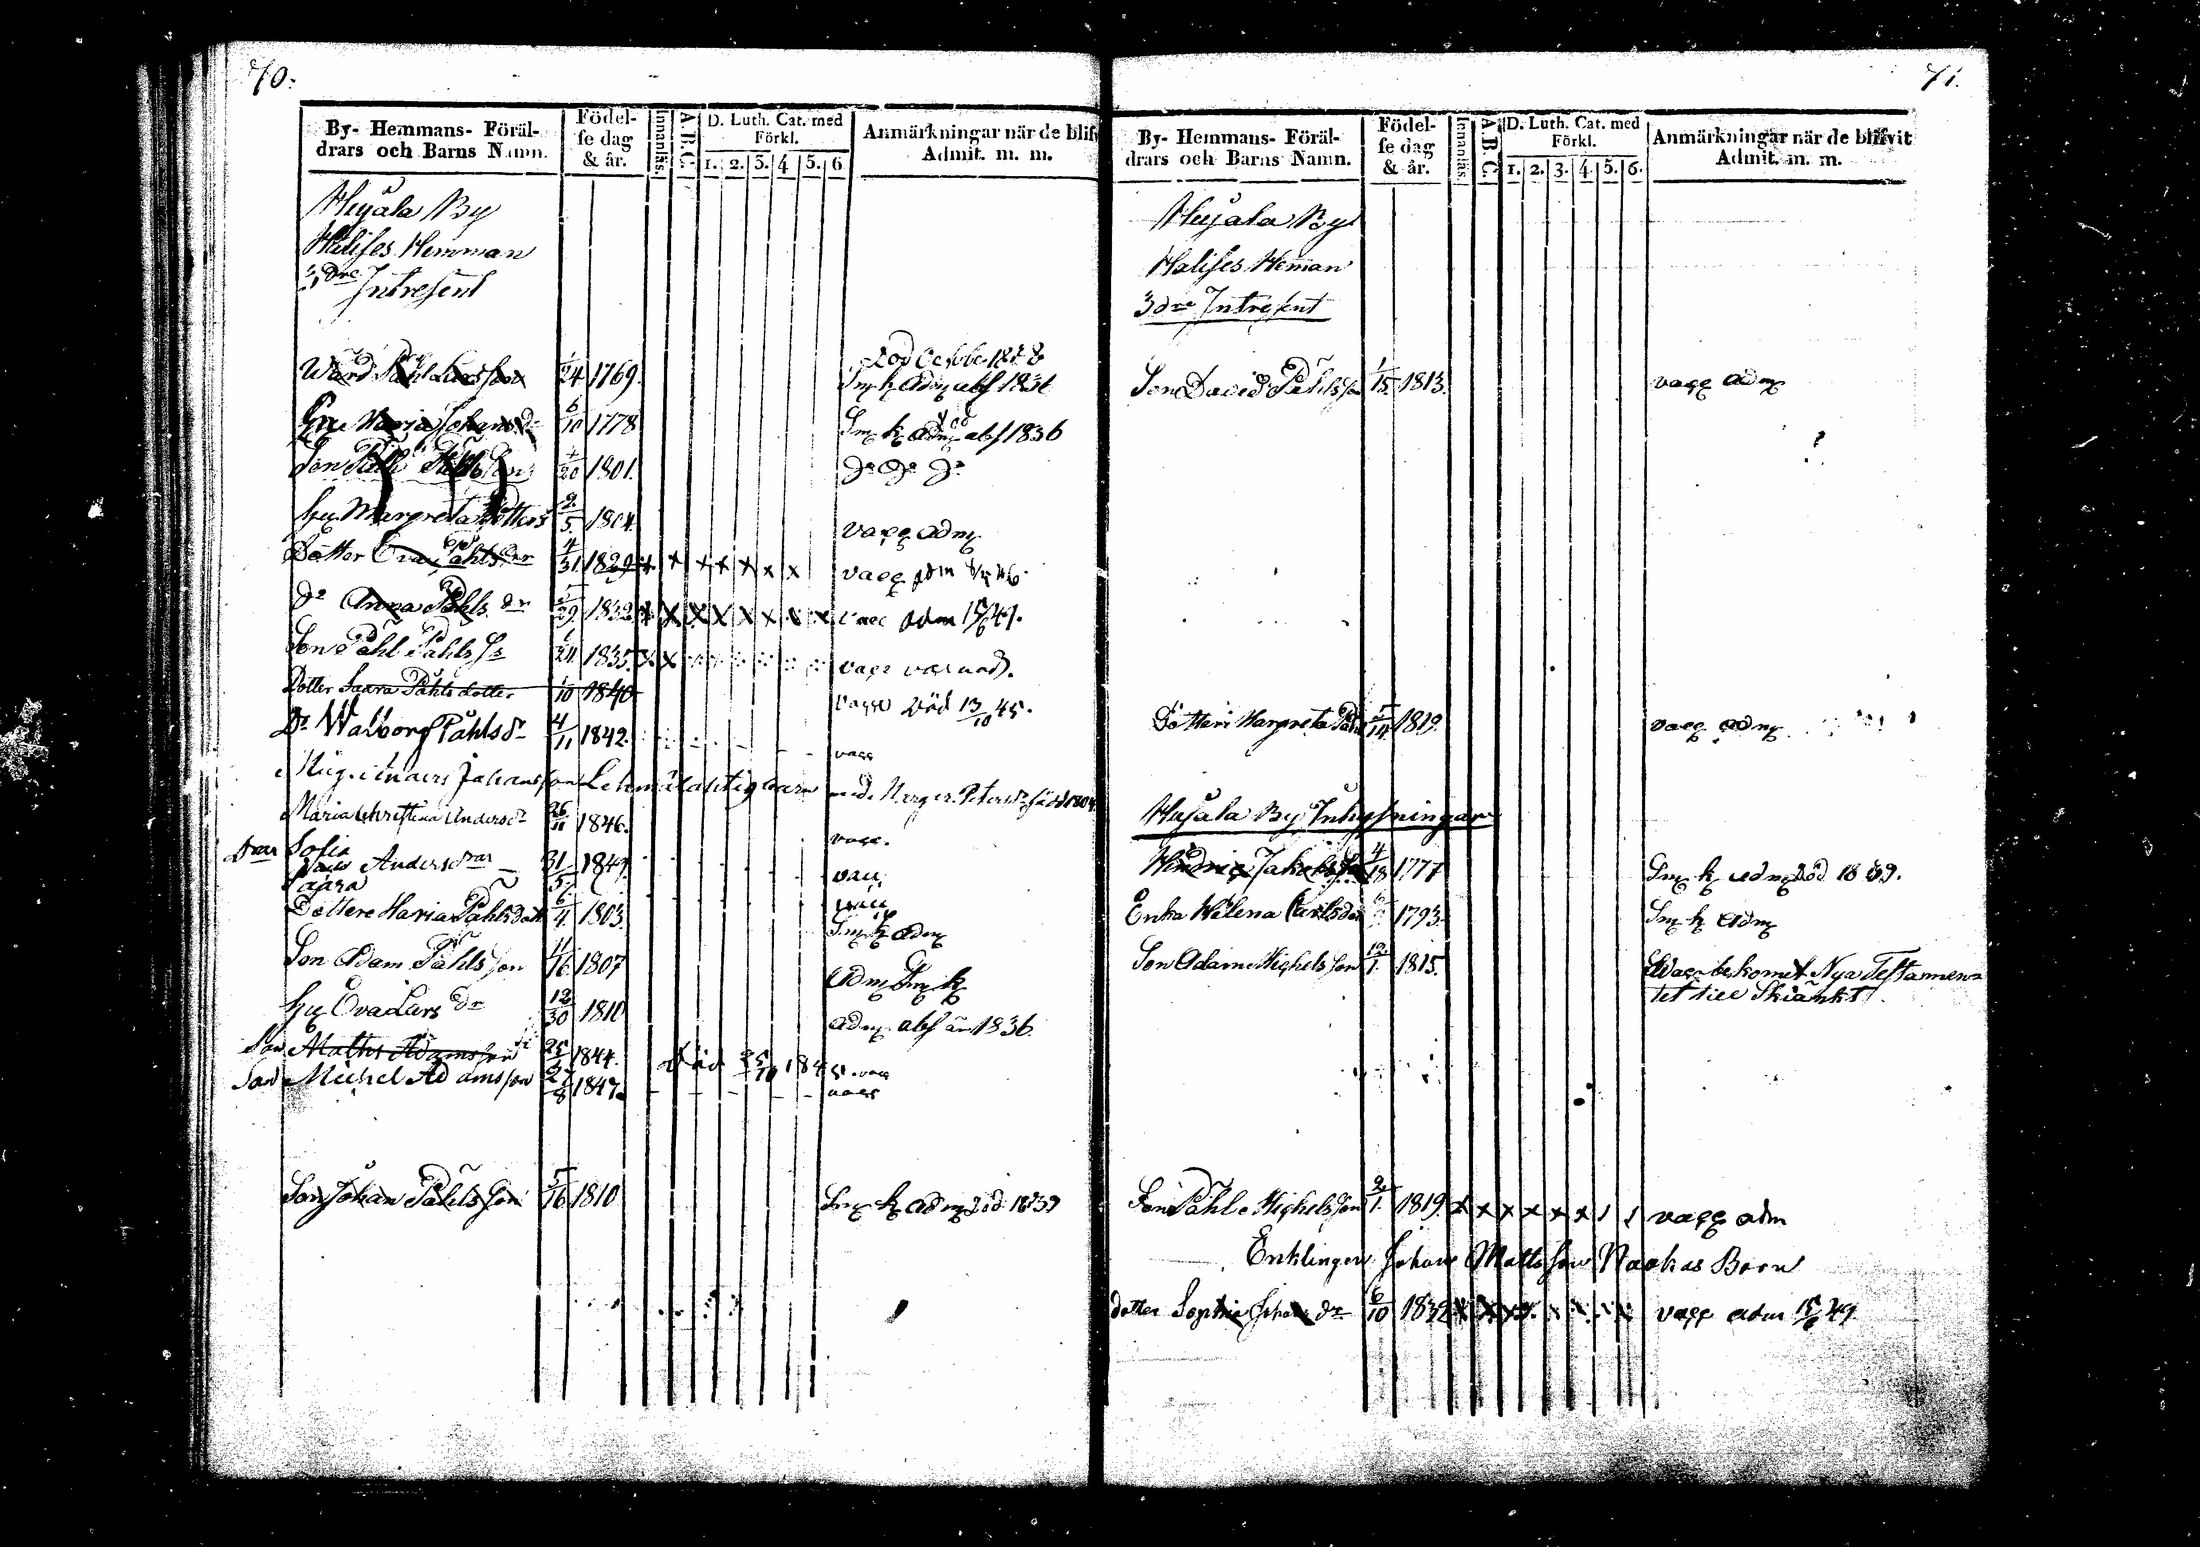 70.
By- Hemmans- Föräl-
drars och Barns Namn.
Födel-
se dag
& år.
Innanläs.
A.B.C.
D. Luth. Cat. med
Förkl.
1. 2. 3. 4 5. 6
Anmärkningar när de blifv
Admit. m. m.
Hujala By
Halises Hemman
3dre Intresent
Wärd Påhl Larsson 1/24 1769. död October 1838
Smk adm abs 1836
Maria Johansdr 6/10 1778 Smk adm abs 1836
Son Påhl Påhlsson 1/20 1801. do do do
hu Margreta 2/5 1804. vacc adm
Dotter Eva Påhlsdr 4/31 1829 x x x x x x x vacc adm 46
do Anna Påhlsdr 29 1832 x x x x x x x x vacc adm 15/6 49.
Son Påhl Påhls 1/24 1835 x x vacc
Dotter Saara Påhlsdotter 1/10 1840 vacc död 13/10 45.
Dr Walborg Påhlsdr 4/11 1842. vacc
Anders Johansson barn med Margr. Petersdr född 1804
Maria Christina Andersdr 26/11 1846. vacc.
Drar Sofia
Andersdrar 31/5 1849 vacc
Saara vacc
Dotter Maria Påhlsdott 6/4 1803. Smk adm
Son Adam Påhlsson 11/16 1807 adm Smk
hu Eva Larsdr 12/30 1810 adm abs 1836
Son Matts Adamsson 25/ 1844. död 25/10 184 vacc
Son Michel Adamsson 27/8 1847. vacc
Son Johan Påhlsson 5/16 1810 Smk adm död 1839
71.
By- Hemmans- Föräl-
drars och Barns Namn.
Födel-
se dag
& år.
Innanläs.
A.B.C.
D. Luth. Cat. med
Förkl.
1. 2. 3. 4. 5. 6.
Anmärkningar när de blifvit
Admit. m. m.
Hujala By
Halises Heman
3dre Intresent
Son David Påhlsson 1/15 1813. vacc adm
Dotter Margreta 1819. vacc adm
Hujala By Inhysningar
Hindric Jakobsson 4/18 1777 Smk adm död 1839.
Enka Helena Carlsdr 1793. Smk adm
Son Adam Michelsson 12/1. 1815. vacc bekomit Nya Testamen=
tet till Skiänkt.
Son Påhl Michelsson 2/1. 1819. x x x x x x vacc adm
Enklingen Johan Mattsson Barn
dotter Sophia Johansdr 6/10 1832 x x x vacc adm 15/6 49.